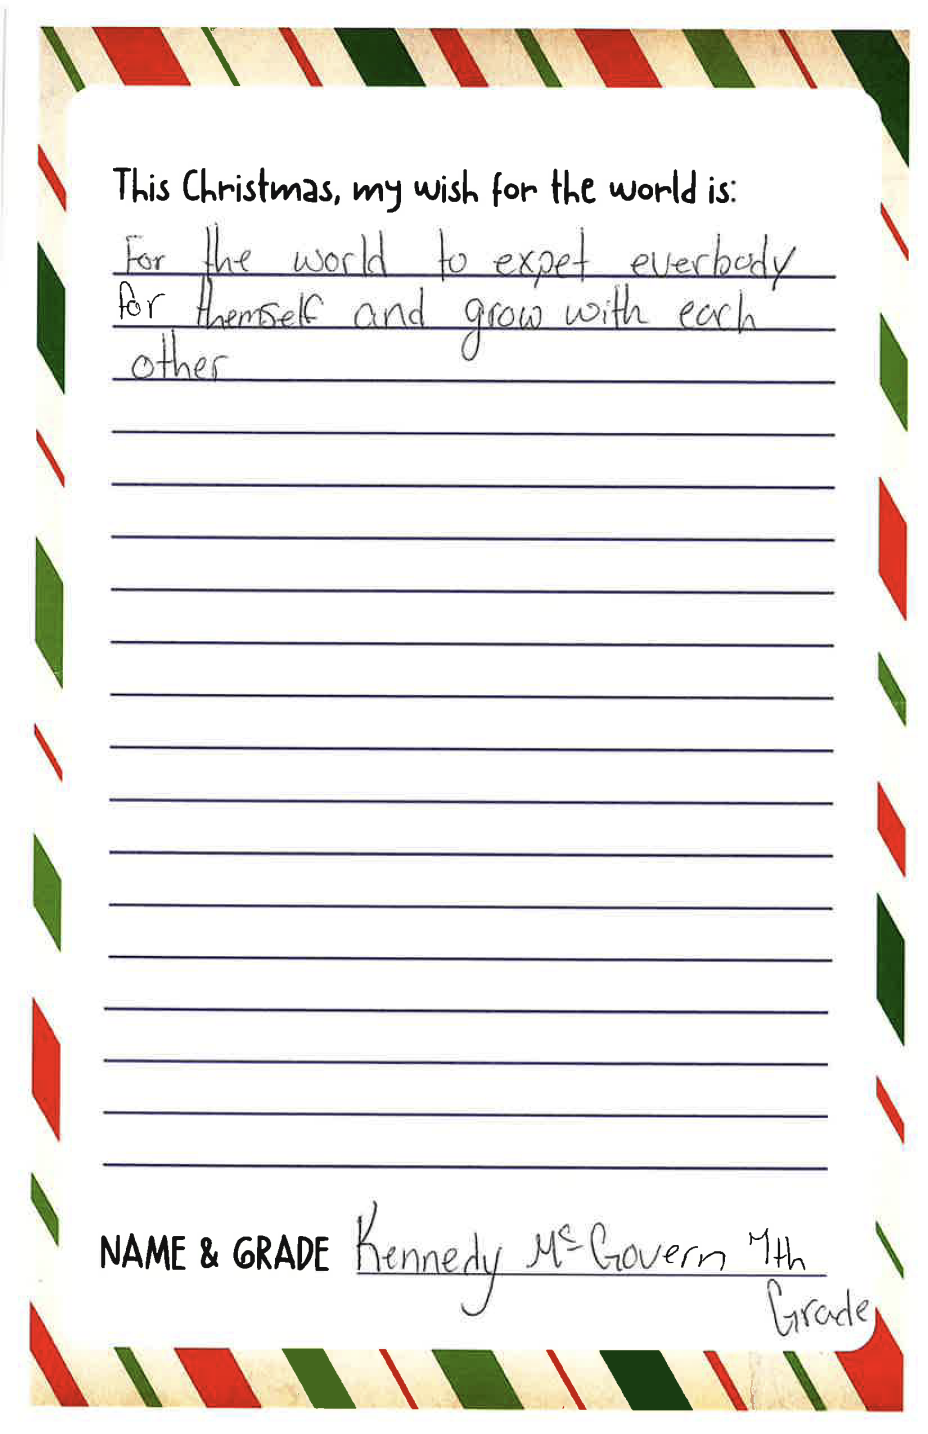 This Christmas, my wish for the world is:
For the world to expet everbody
for themself and grow with each
other
NAME & GRADE Kennedy McGovern 7th
Grade